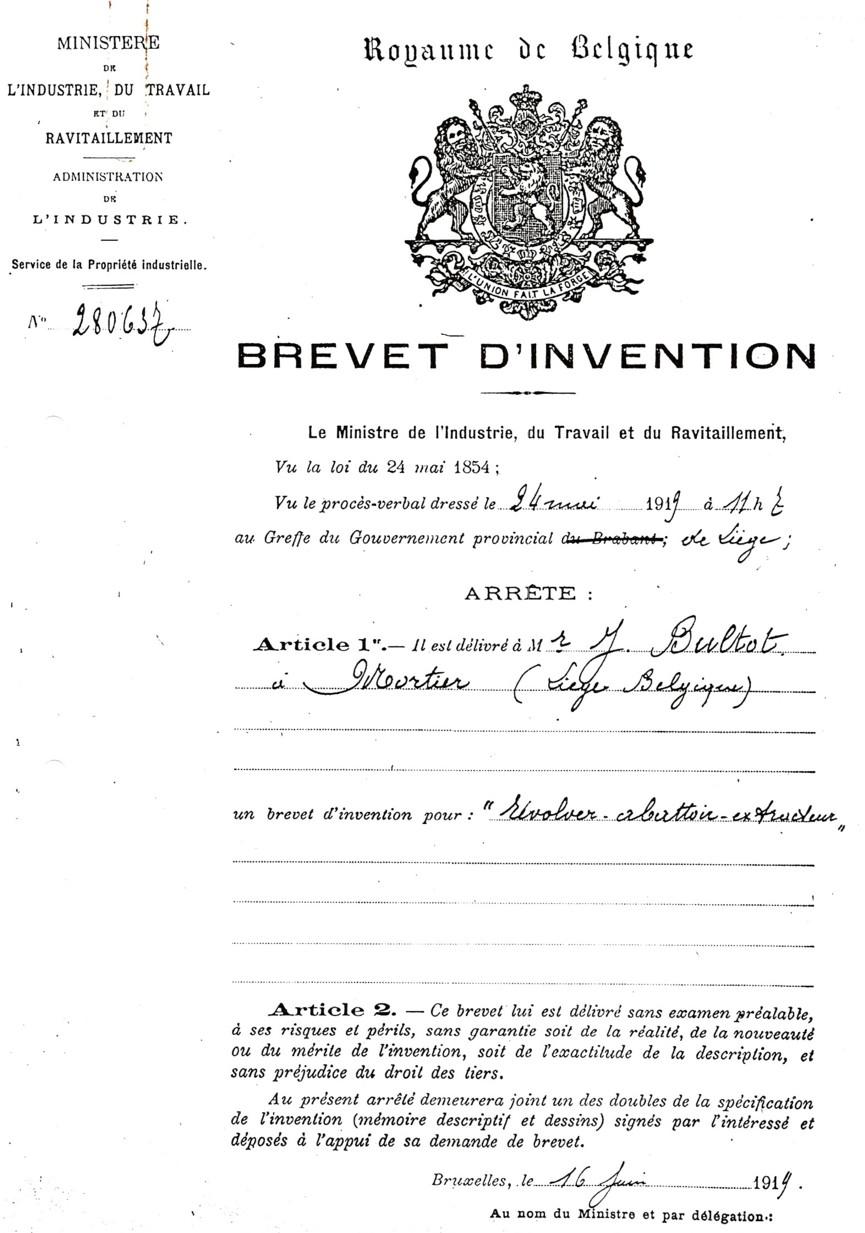 MINISTERE
DE
L'INDUSTRIE, DU TRAVAIL
ET DU
RAVITAILLEMENT
ADMINISTRATION
DE
L'INDUSTRIE.
Service de la Propriété industrielle.
N° 280637
Royaume de Belgique
L'UNION FAIT LA FORCE
BREVET D'INVENTION
Le Ministre de l'Industrie, du Travail et du Ravitaillement,
Vu la loi du 24 mai 1854 ;
Vu le procès-verbal dressé le 24 mai 1919 à 11 h
au Greffe du Gouvernement provincial du Brabant ; de Liège ;
ARRÊTE :
Article 1er. — Il est délivré à Mr J. Bultot.
à Mortier (Liège Belgique)
un brevet d'invention pour : " Révolver - abattoir - extracteur "
Article 2. — Ce brevet lui est délivré sans examen préalable,
à ses risques et périls, sans garantie soit de la réalité, de la nouveauté
ou du mérite de l'invention, soit de l'exactitude de la description, et
sans préjudice du droit des tiers.
Au présent arrêté demeurera joint un des doubles de la spécification
de l'invention (mémoire descriptif et dessins) signés par l'intéressé et
déposés à l'appui de sa demande de brevet.
Bruxelles, le 16 Juin 1919.
Au nom du Ministre et par délégation :